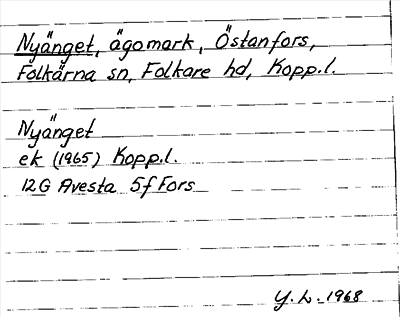 Nyänget, ägomark, Östanfors,
Folkärna sn, Folkare hd, Kopp.l.
Nyänget
ek (1965) Kopp.l.
12G Avesta 5f Fors
Y.L. 1968